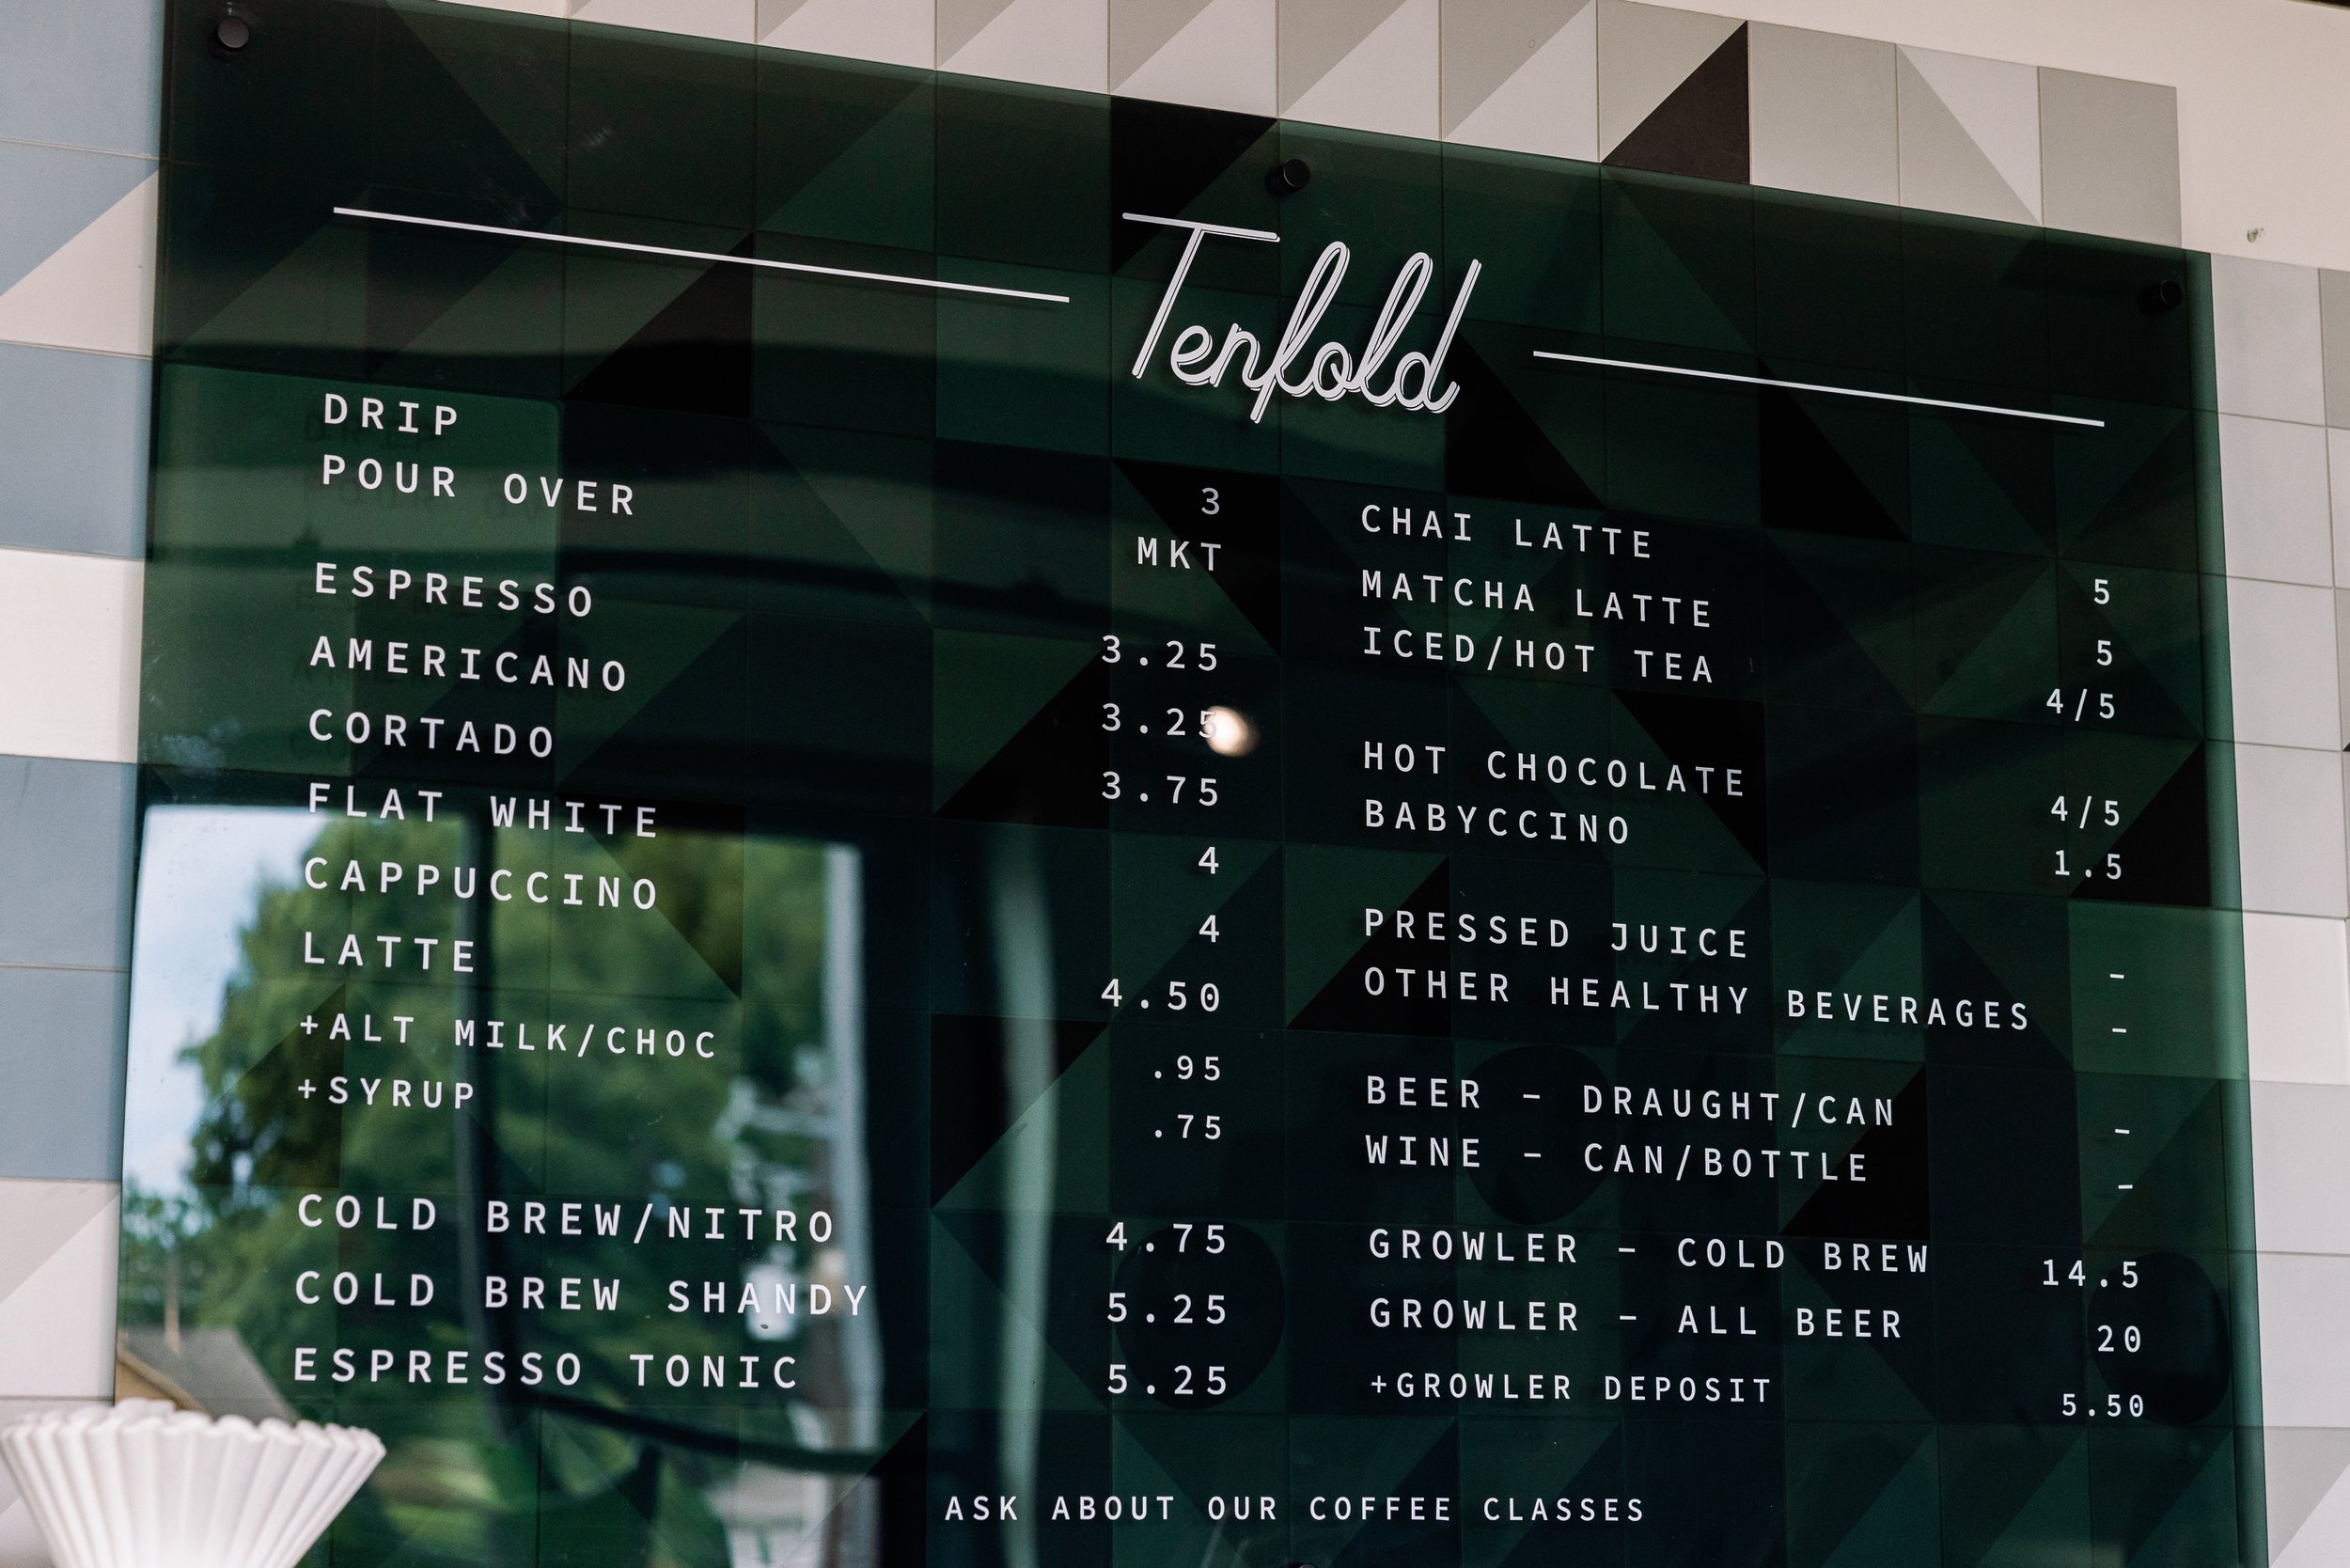 Tenfold
DRIP 3
POUR OVER MKT
ESPRESSO 3.25
AMERICANO 3.25
CORTADO 3.75
FLAT WHITE 4
CAPPUCCINO 4
LATTE 4.50
+ALT MILK/CHOC .95
+SYRUP .75
COLD BREW/NITRO 4.75
COLD BREW SHANDY 5.25
ESPRESSO TONIC 5.25
CHAI LATTE 5
MATCHA LATTE 5
ICED/HOT TEA 4/5
HOT CHOCOLATE 4/5
BABYCCINO 1.5
PRESSED JUICE –
OTHER HEALTHY BEVERAGES –
BEER – DRAUGHT/CAN –
WINE – CAN/BOTTLE –
GROWLER – COLD BREW 14.5
GROWLER – ALL BEER 20
+GROWLER DEPOSIT 5.50
ASK ABOUT OUR COFFEE CLASSES